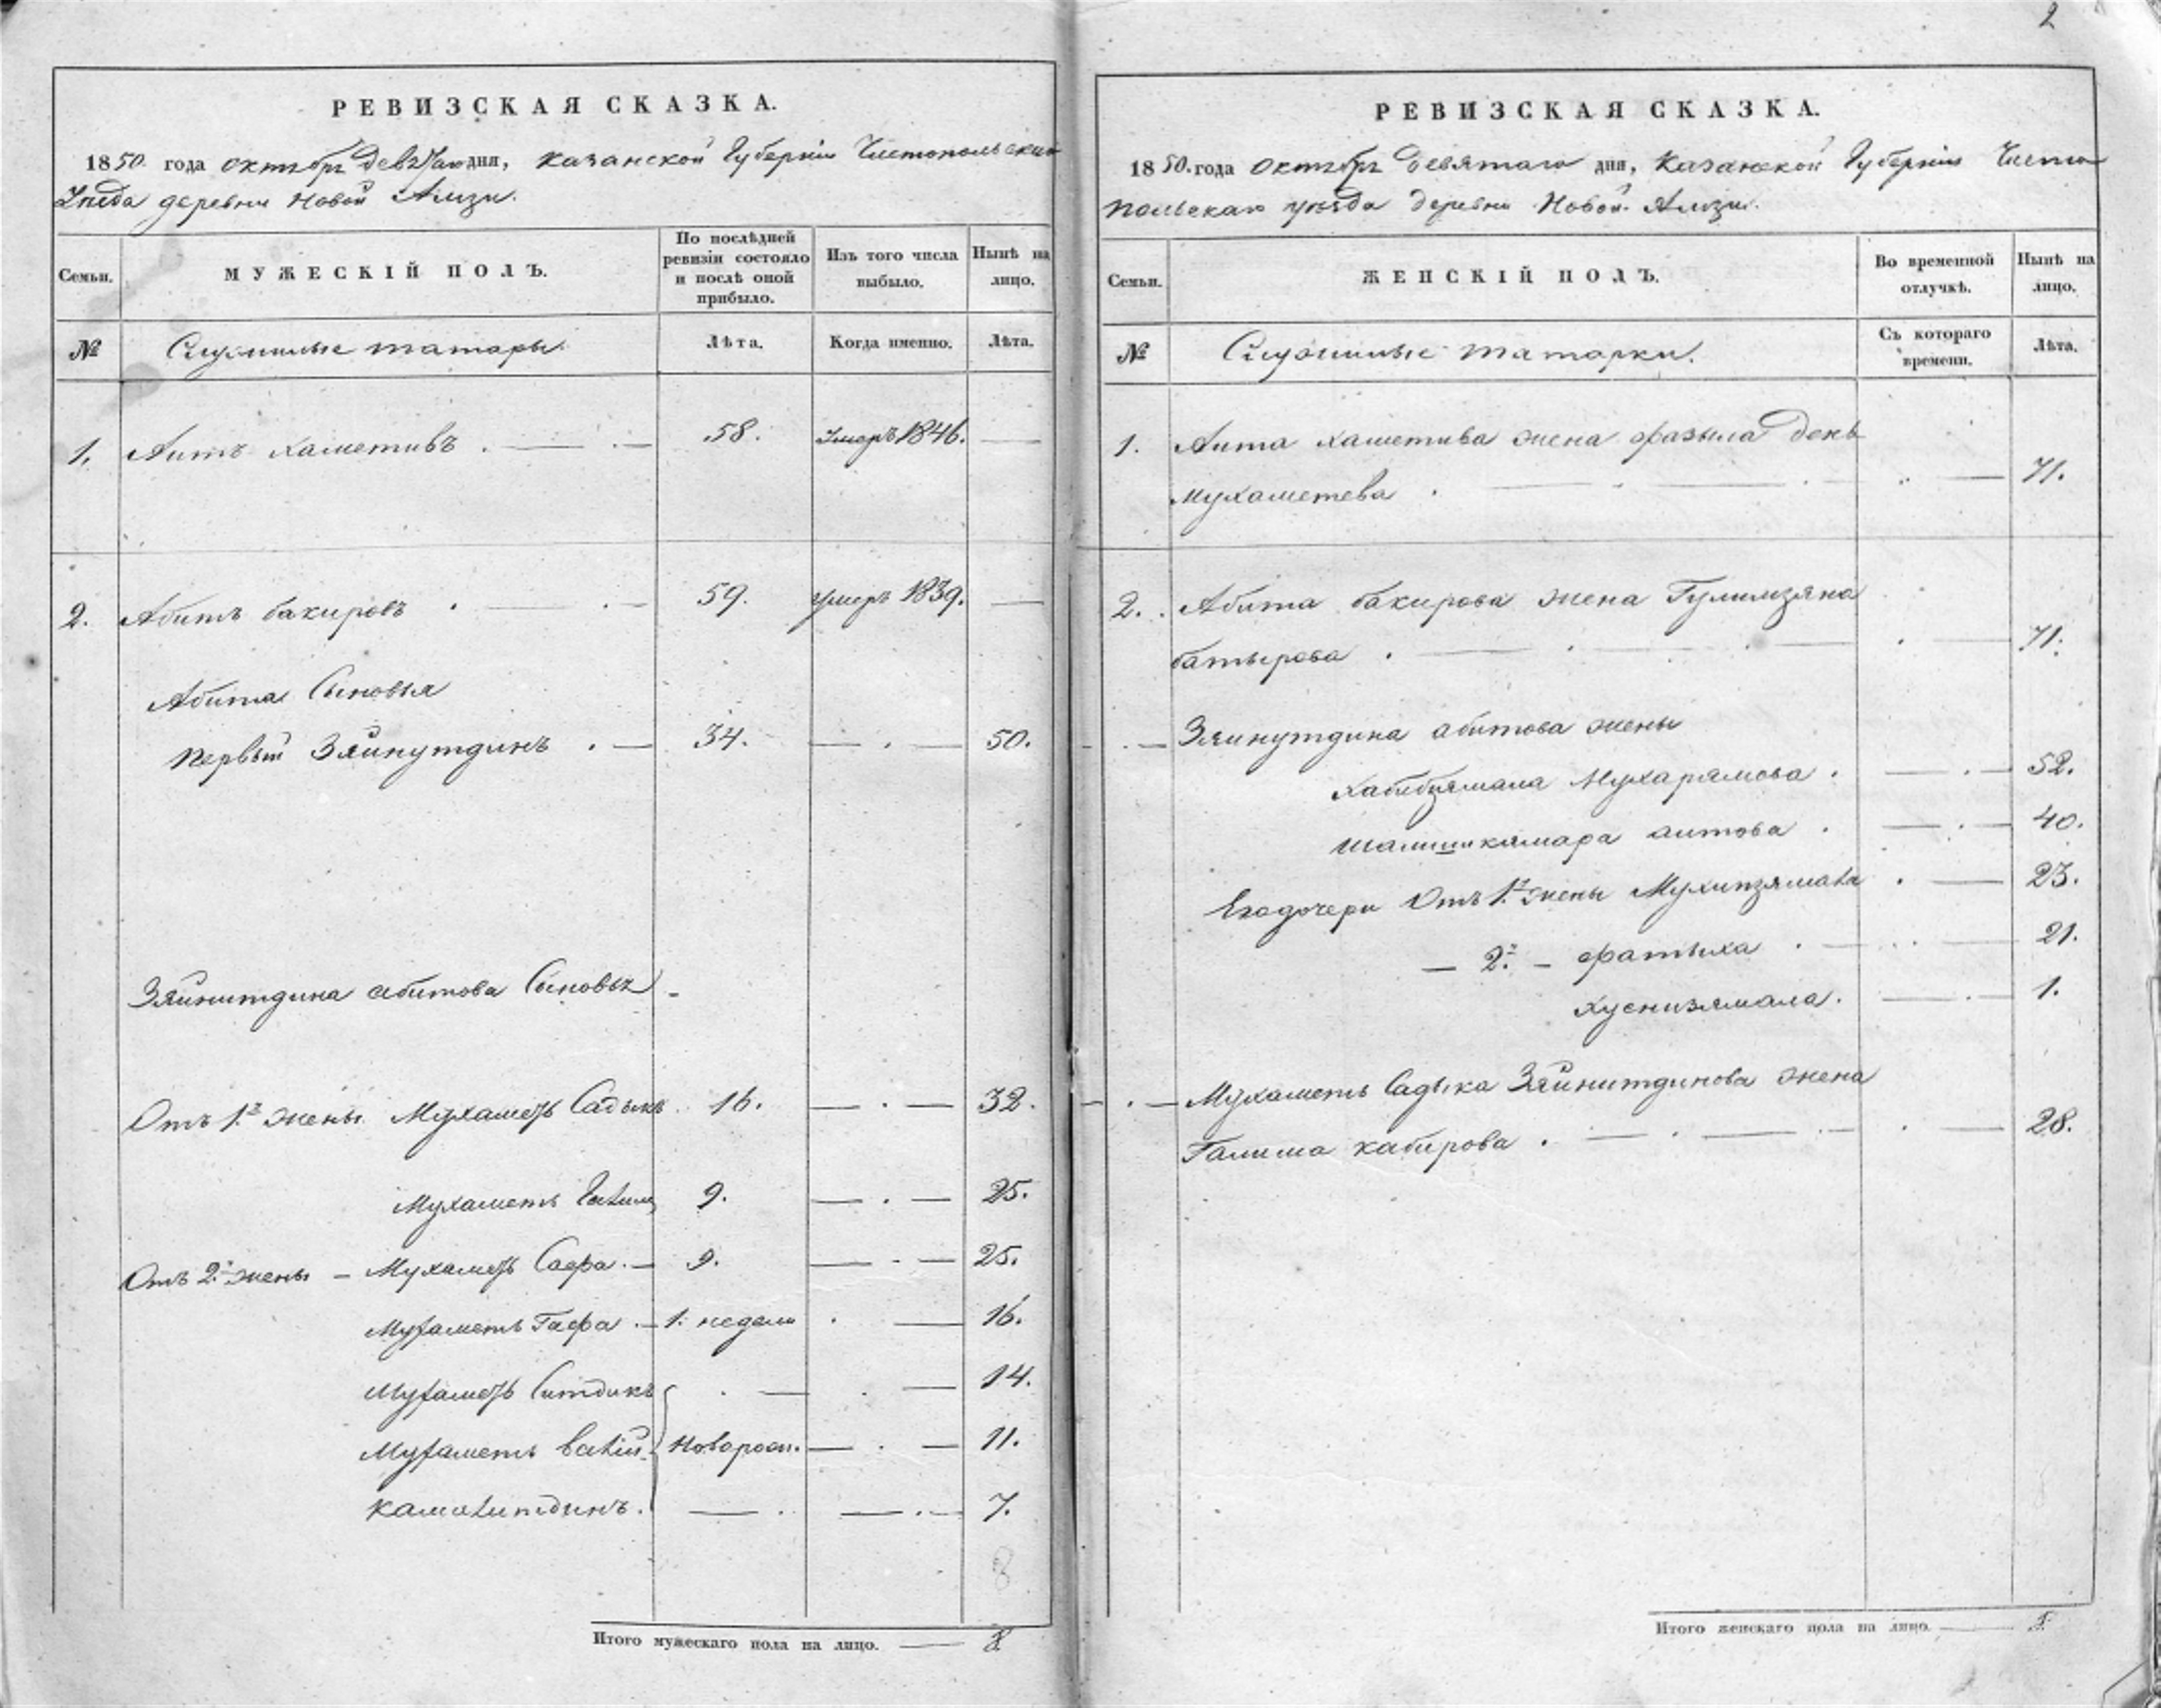 2
РЕВИЗСКАЯ СКАЗКА.
1850. года октябр девятаго дня, Казанской Губерніи Чистопольскаго
Уезда деревни Новой Амзи.
Семьи.
МУЖЕСКІЙ ПОЛЪ.
По послѣдней ревизіи состояло и послѣ оной прибыло.
Изъ того числа выбыло.
Нынѣ на лицо.
№
Служилые татары.
Лѣта.
Когда именно.
Лѣта.
1. Аитъ Хаметивъ . — . — 58. Умеръ 1846. —
2. Абитъ бакировъ . — . — 59. умеръ 1839. —
Абита Сыновья
Первый Зяйнутдинъ . — 34. — . — 50.
Зяйнитдина абитова Сыновья
Отъ 1й жены Мухаметь Садыкъ 16. — . — 32.
Мухаметь 9. — . — 25.
Отъ 2й жены — Мухаметь Сафа . — 9. — . — 25.
Мухаметь Гафа . — 1. недели . — 16.
Мухаметь Ситдикъ . — . — 14.
Мухаметь Валій Новорож. — . — 11.
Камалитдинъ. — . — . — 7.
8
Итого мужескаго пола на лицо. — 8
РЕВИЗСКАЯ СКАЗКА.
1850. года Октябр Девятаго дня, Казанской Губерніи Чисто
польскаго уезда деревни Новой Амзи.
Семьи.
ЖЕНСКІЙ ПОЛЪ.
Во временной отлучкѣ.
Нынѣ на лицо.
№
Служилые татарки.
Съ котораго времени.
Лѣта.
1. Аита хаметива жена фазыла День
мухаметева . — . — 71.
2. Абита бакирова жена Гулимзяна
батырова . — . — 71.
— . — Зяинутдина абитова жены
Хабибзямала Мухарямова . — . — 52.
Шамшикамара аитова . — . — 40.
Его дочери Отъ 1й жены Мухипзямала . — 23.
— 2й — фатыха . — 21.
хуснизямала. — . — 1.
— . — Мухаметь Садыка Зяйнитдинова жена
Галима кабирова . — . — 28.
Итого женскаго пола на лицо. —